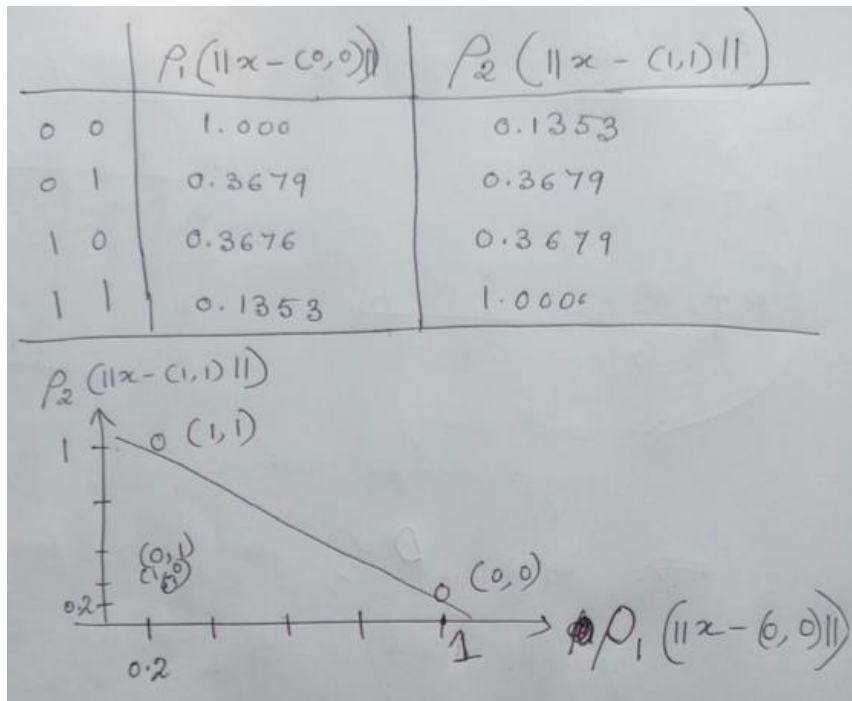 ρ₁(||x-(0,0)|| ρ₂ (||x - (1,1)||)
0 0 1.000 0.1353
0 1 0.3679 0.3679
1 0 0.3676 0.3679
1 1 0.1353 1.0000
ρ₂ (||x-(1,1)||)
1 (1,1)
(0,1)
(1,0)
(0,0)
0.2
0.2 1 ρ₁ (||x-(0,0)||)